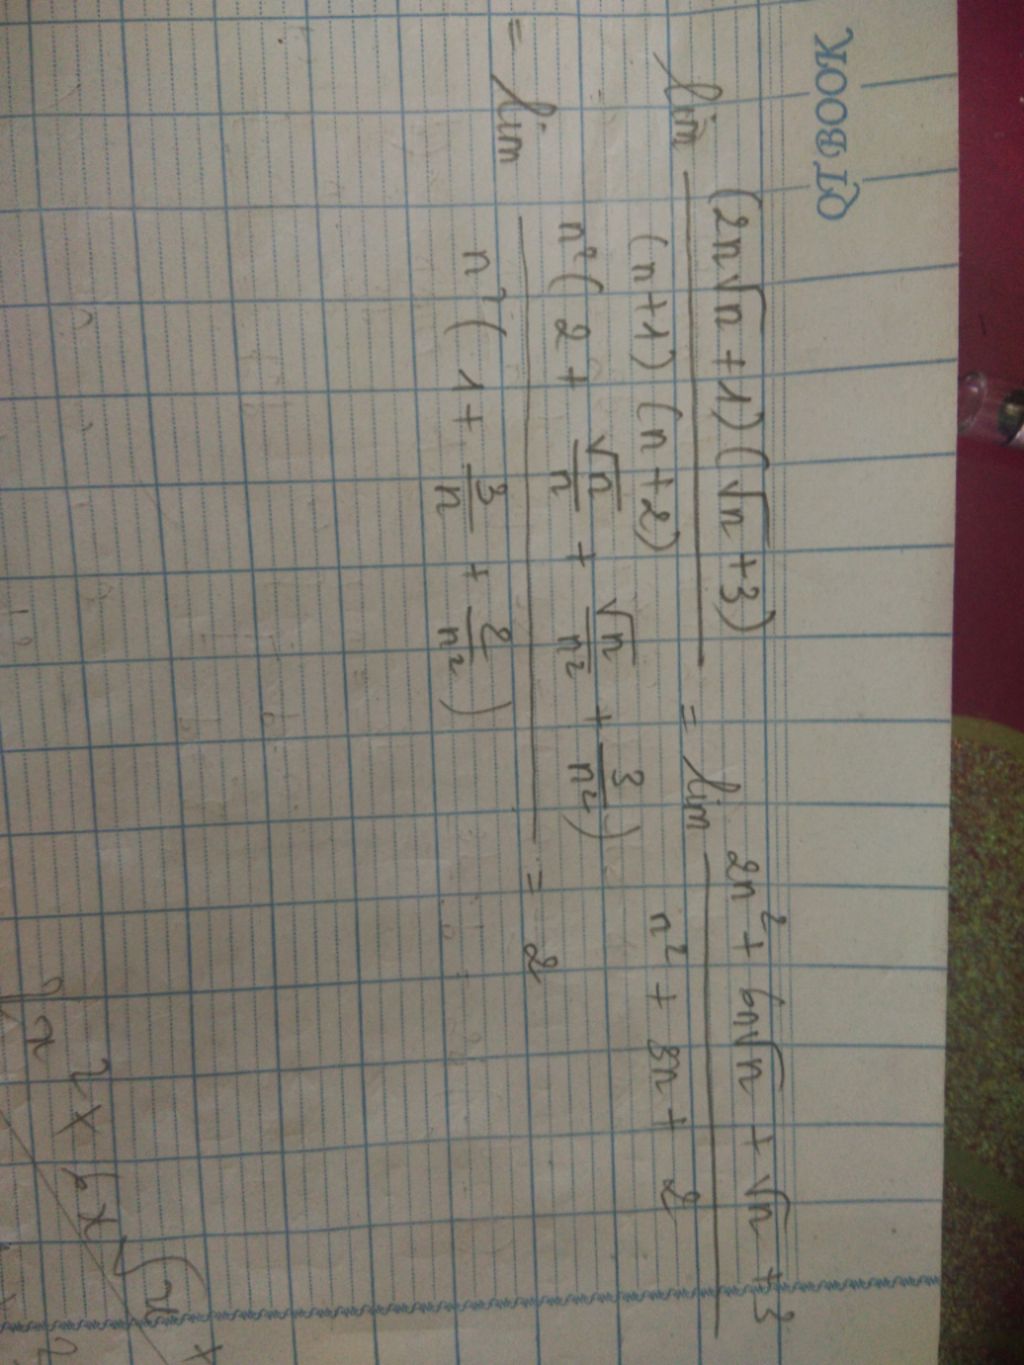 QTBOOK
lim (2n√n + 1)(√n + 3) / (n+1)(n+2) = lim 2n² + 6n√n + √n + 3 / n² + 3n + 2
= lim n²(2 + √n/n + √n/n² + 3/n²) / n²(1 + 3/n + 2/n²) = 2